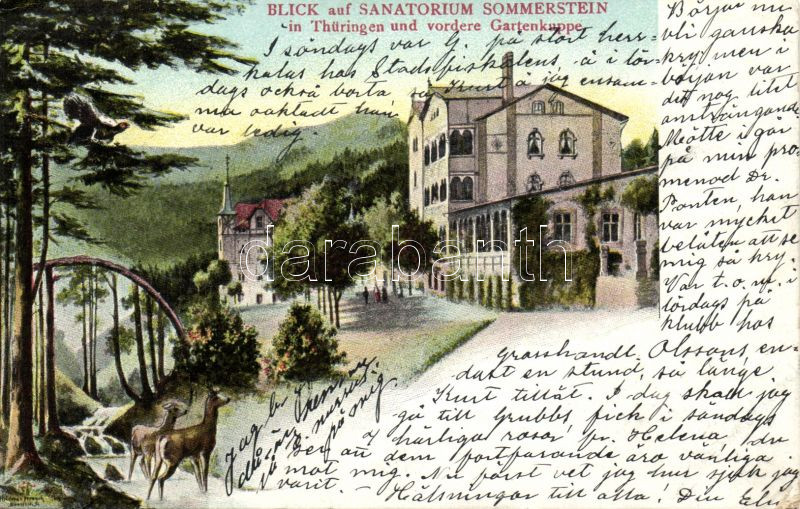 BLICK auf SANATORIUM SOMMERSTEIN
in Thüringen und vordere Gartenkuppe.
I söndags var G. på stort herr-
kalas hos Stadsfiskalens, å i lör-
dags också borta så Kurt å jag ensam-
ma
var ledig.
Börjar nu
bli ganska
kry, men i
början var
det nog litet
ansträngande.
Mötte i går
på min pro-
menad Dr.
Ponten, han
var mycket
belåten att se
mig så kry.
Var t.o.m. i
lördags på
klubb hos
Grosshandl. Olssons, en-
dast en stund, så länge
Kurt tillät. I dag skall jag
gå till Grubbs, fick i söndags
härliga rosor fr. Helena,
att dem fortfarande äro vänliga
mot mig. Nu först vet jag hur sjuk jag
varit. - Hälsningar till alla. Din Elin
Jag ber
på mig
darabanth